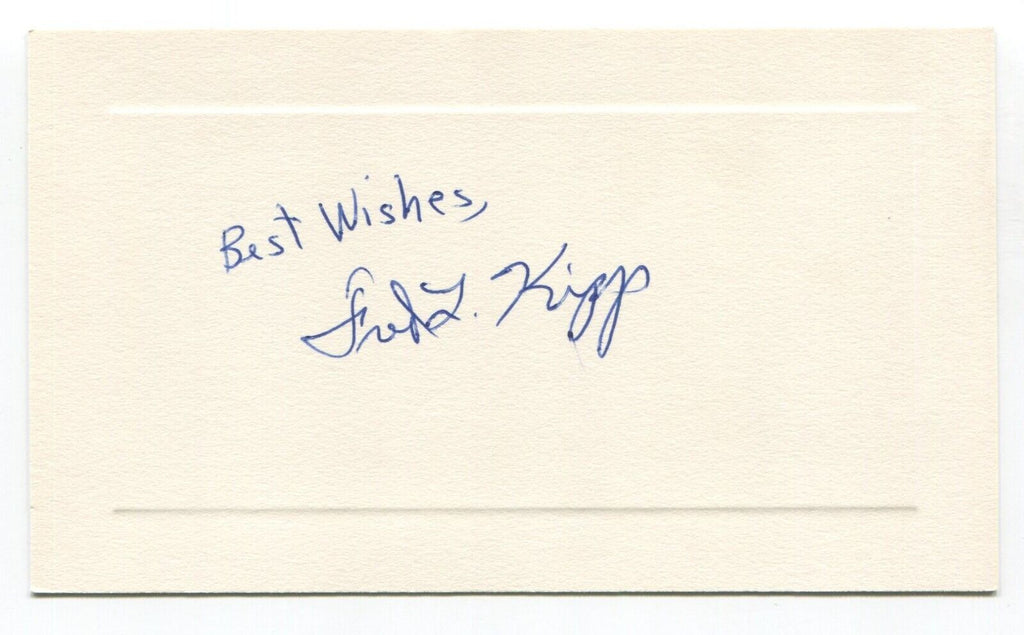 Best Wishes,
Fred L. Kipp